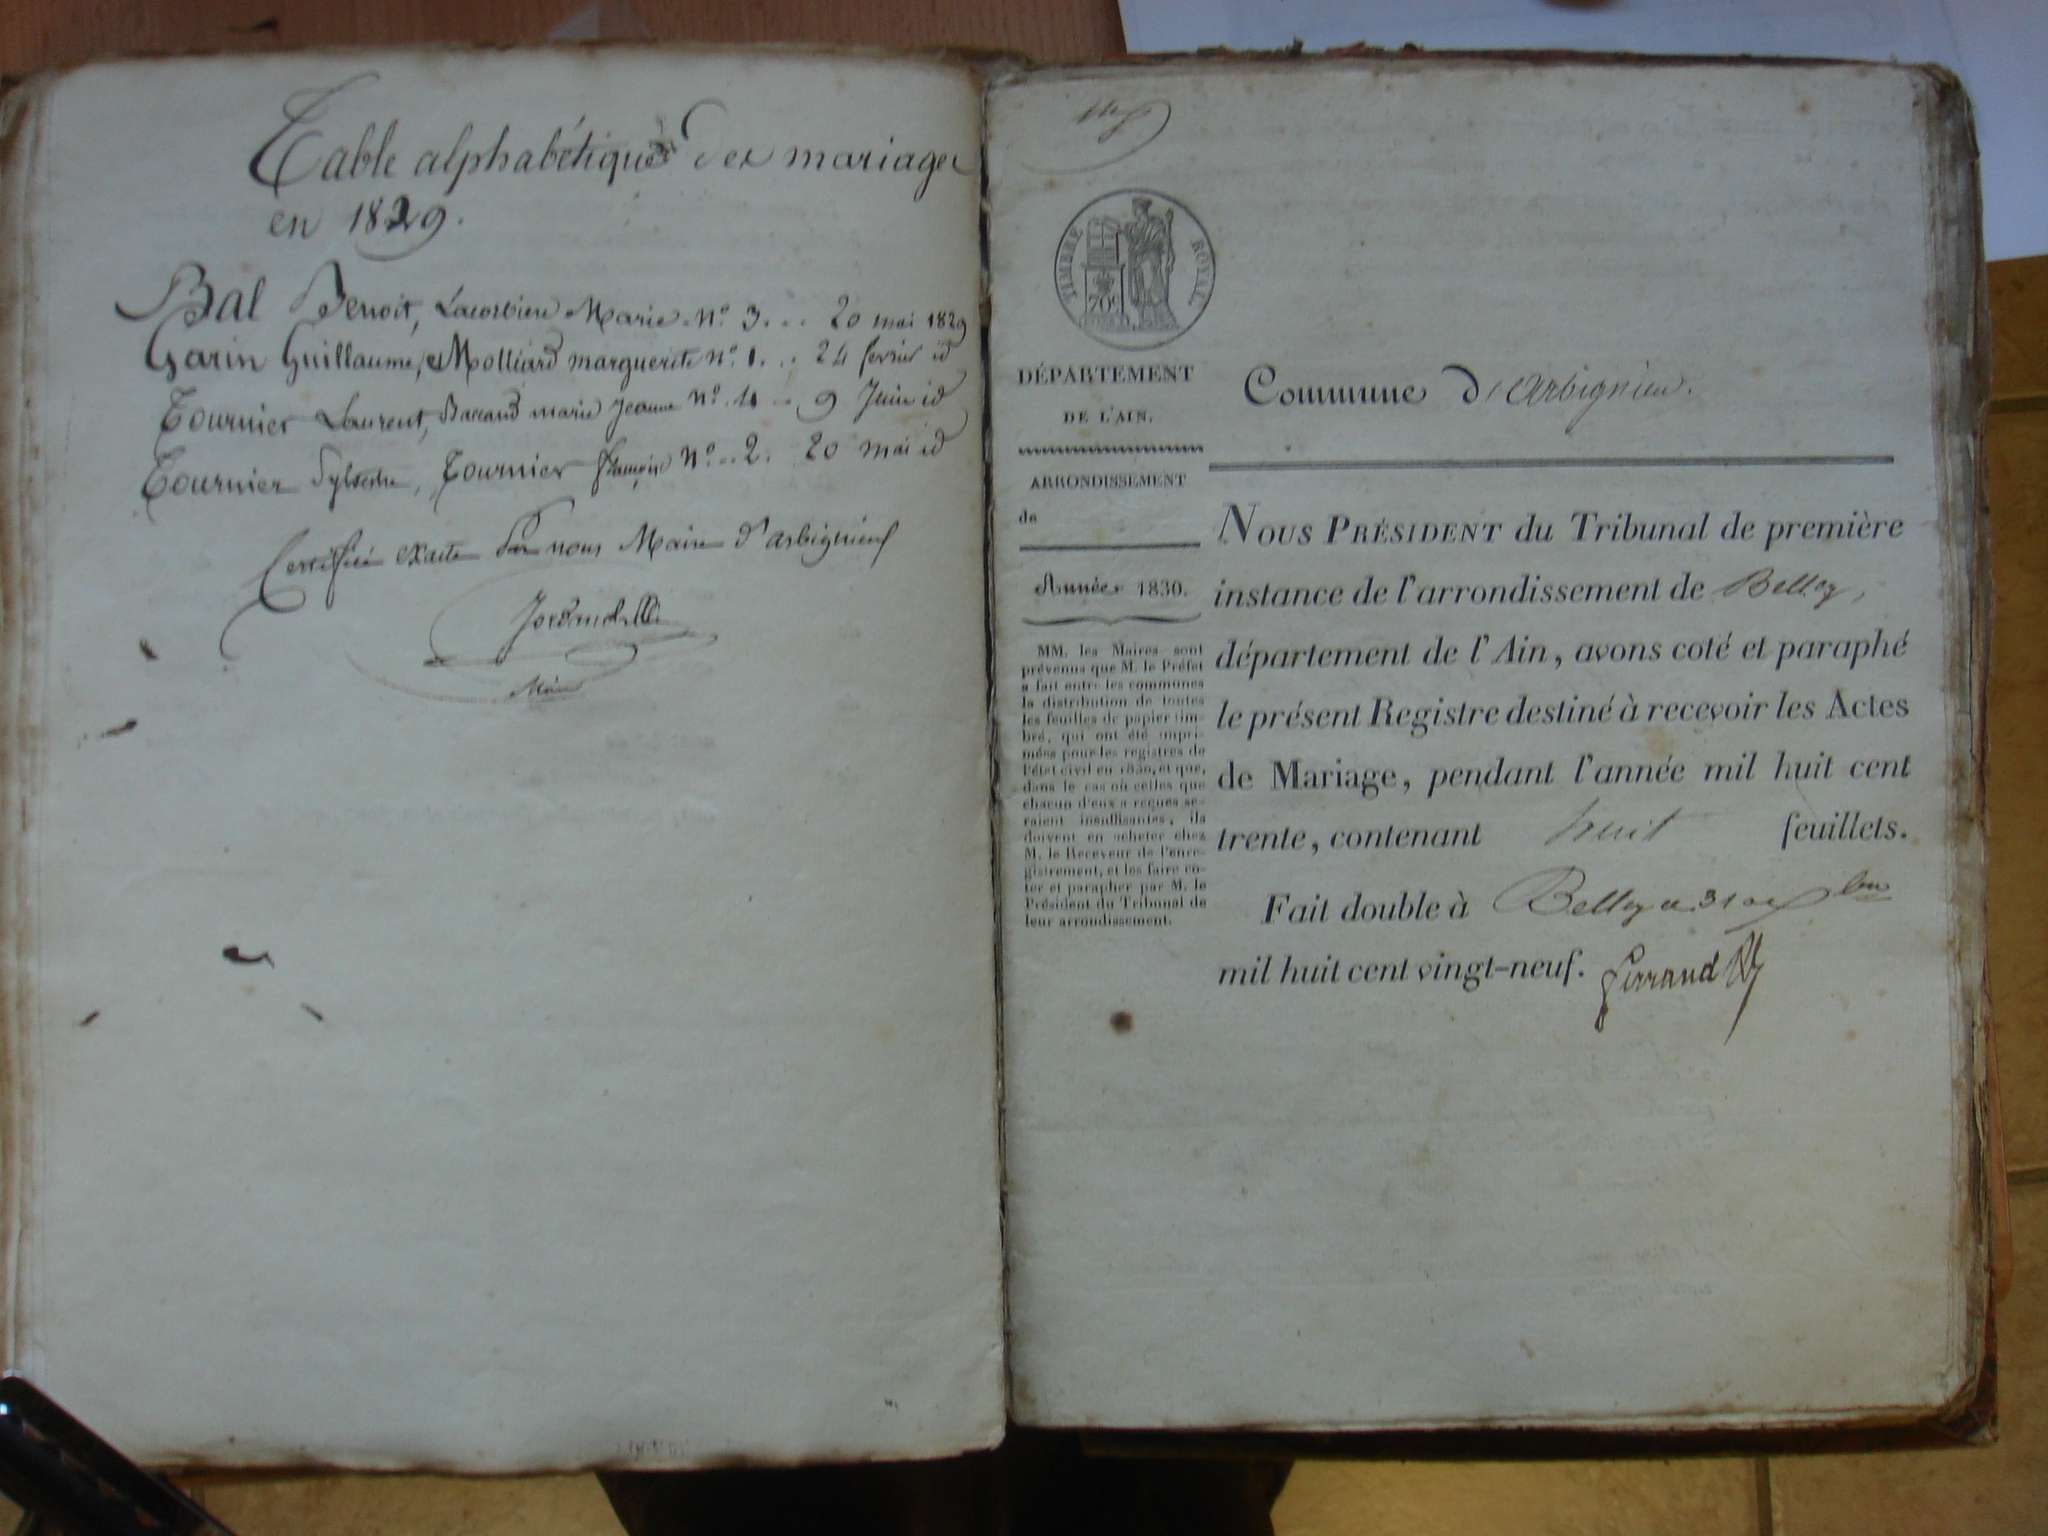 Table alphabétique des mariages
en 1829.
Bal Benoit, Lacorbiere Marie nº 3. .. 20 mai 1829
Garin Guillaume, Molliard marguerite nº. 1. .. 24 fevrier id
Tournier Laurent, Baccard marie Jeanne nº. 4 .. 9 Juin id
Tournier Sylvestre, Tournier françoise nº .. 2. 20 mai id
Certifiée exacte Par nous Maire d'arbignieu
Maire
TIMBRE ROYAL
70c
DÉPARTEMENT
DE L'AIN.
ARRONDISSEMENT
de
Année 1830.
MM. les Maires sont
prévenus que M. le Préfet
a fait entre les communes
la distribution de toutes
les feuilles de papier tim-
bré, qui ont été impri-
mées pour les registres de
l'état civil en 1830, et que,
dans le cas où celles que
chacun d'eux a reçues se-
raient insuffisantes, ils
doivent en acheter chez
M. le Receveur de l'enre-
gistrement, et les faire co-
ter et parapher par M. le
Président du Tribunal de
leur arrondissement.
Commune d'arbignieu.
NOUS PRÉSIDENT du Tribunal de première
instance de l'arrondissement de Belley,
département de l'Ain, avons coté et paraphé
le présent Registre destiné à recevoir les Actes
de Mariage, pendant l'année mil huit cent
trente, contenant huit feuillets.
Fait double à Belley le 31
mil huit cent vingt-neuf. Ferrand